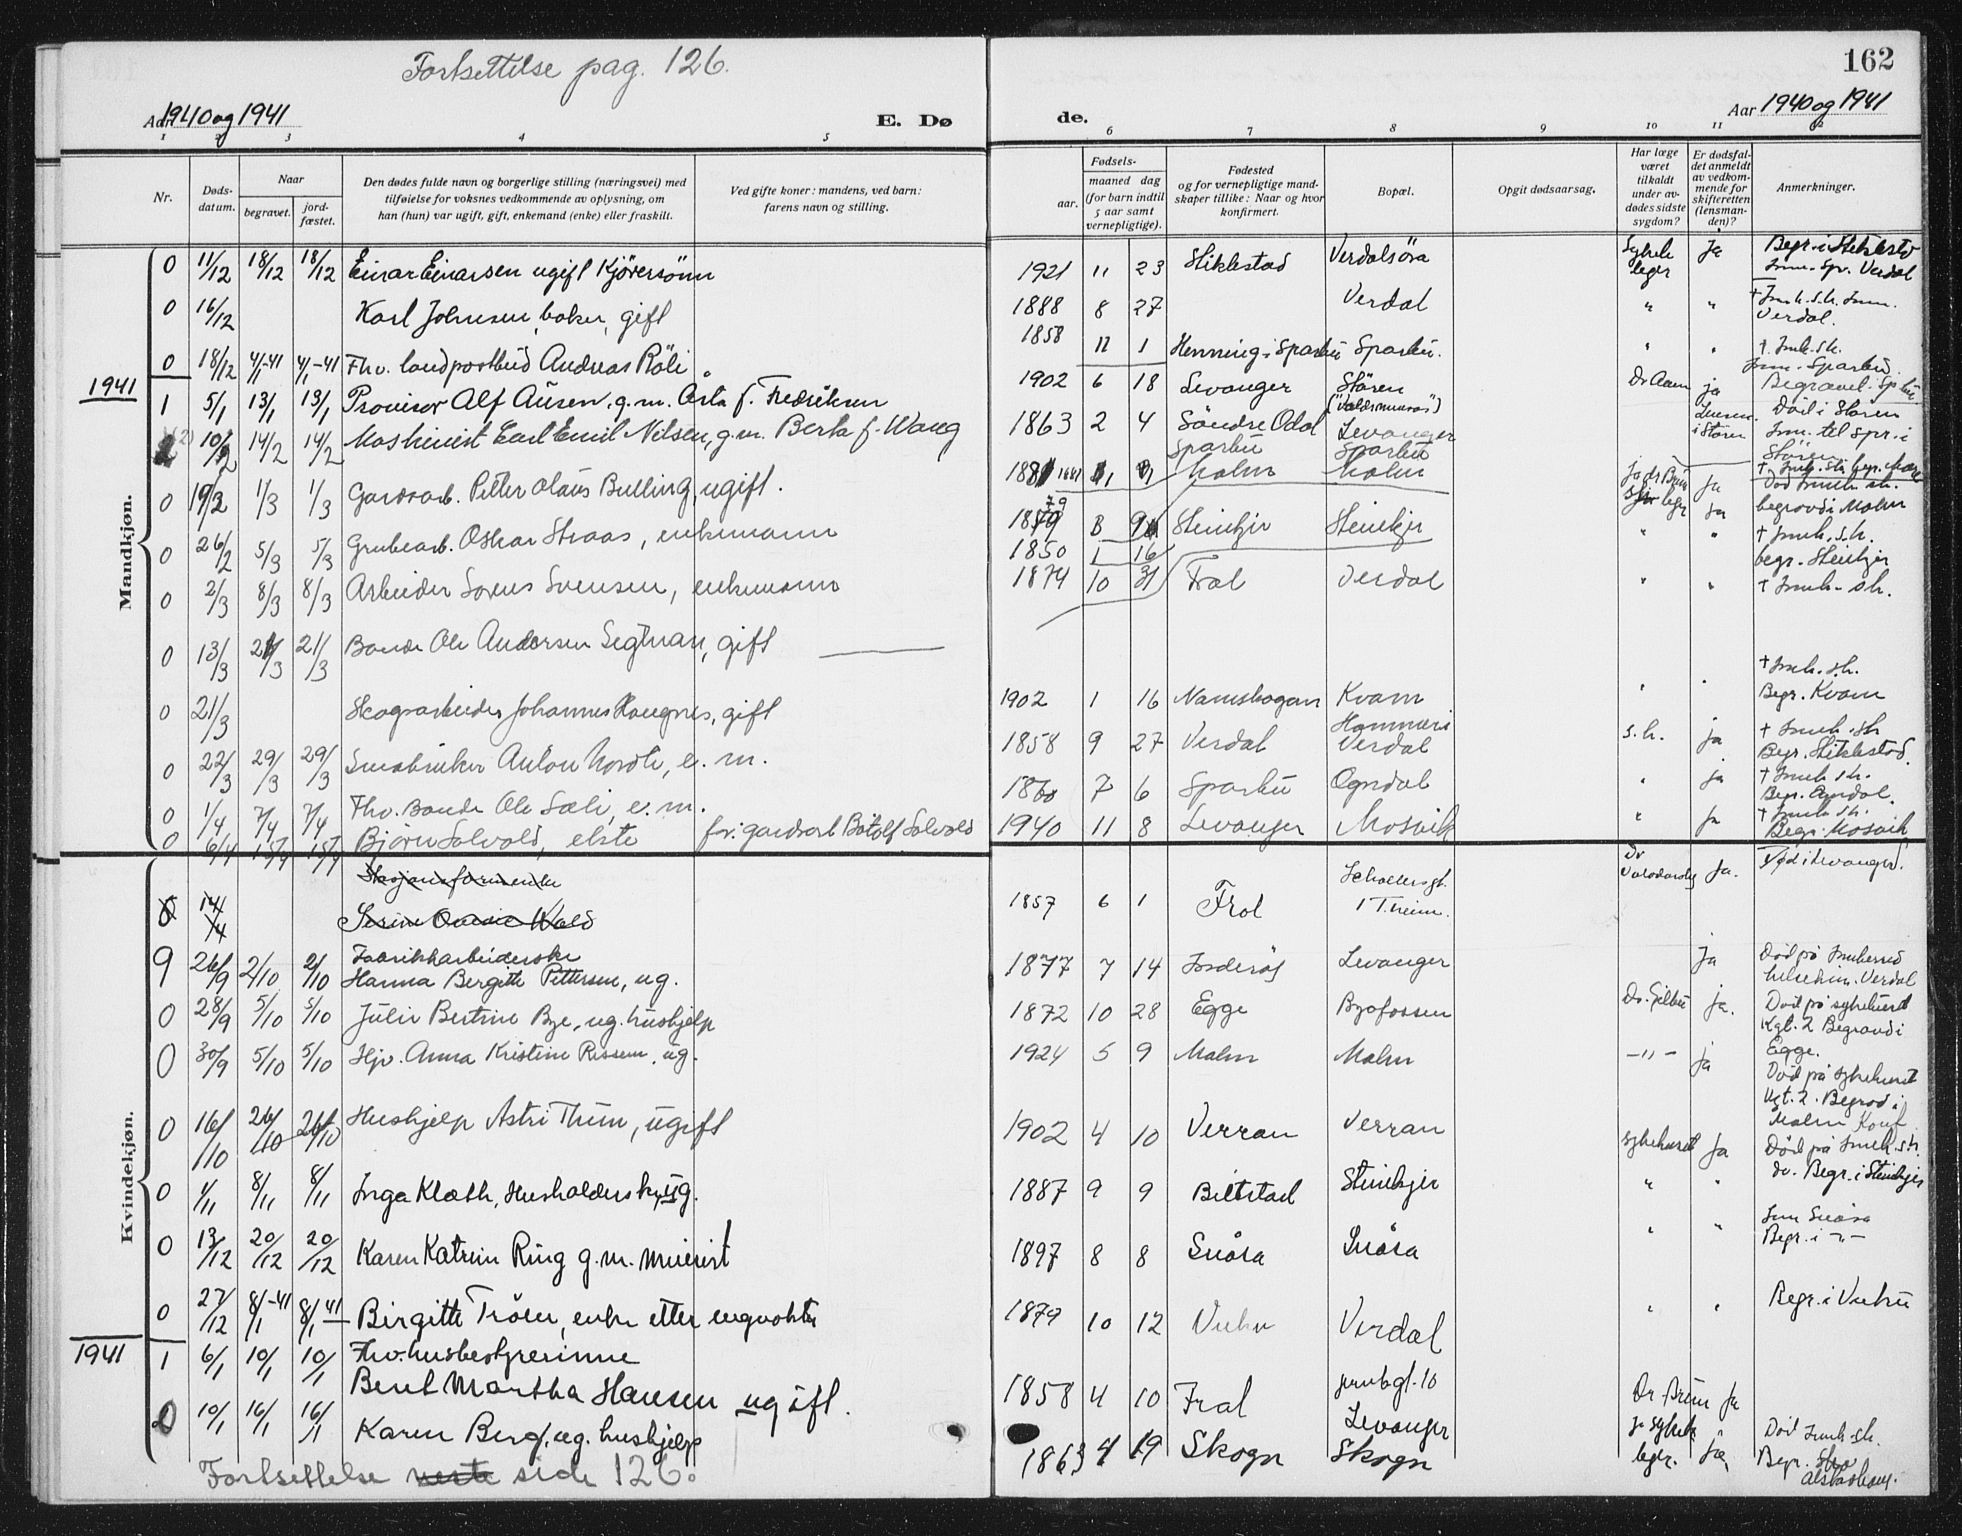 Fortsettelse pag. 126.
162
Aar 1940 og 1941
E. Dø
de.
Aar 1940 og 1941
1 2 3 4 5 6 7 8 9 10 11 12
Nr.
Døds-
datum.
Naar
begravet.
jord-
fæstet.
Den dødes fulde navn og borgerlige stilling (næringsvei) med
tilføielse for voksnes vedkommende av oplysning, om
han (hun) var ugift, gift, enkemand (enke) eller fraskilt.
Ved gifte koner: mandens, ved barn:
farens navn og stilling.
Fødsels-
aar.
maaned dag
(for barn indtil
5 aar samt
vernepligtige).
Fødested
og for vernepligtige mand-
skaper tillike: Naar og hvor
konfirmert.
Bopæl.
Opgit dødsaarsag.
Har læge
været
tilkaldt
under av-
dødes sidste
sygdom?
Er dødsfal-
det anmeldt
av vedkom-
mende for
skifteretten
(lensman-
den)?
Anmerkninger.
Mandkjøn.
0 11/12 18/12 18/12 Einar Einarsen ugift Kjøresønn 1921 11 23 Stiklestad Verdalsöra Sykeh leger Ja Begr. i Stiklestad
Inn. Spr. Verdal
0 16/12 Karl Johnsen, baker, gift 1888 8 27 Verdal " " † Innh. s.h. Inn.
Verdal.
0 18/12 4/1-41 4/1-41 Fhv. landpostbud Andreas Röli 1858 11 1 Henning i Sparbu Sparbu. " " † Innh. sh.
Inn. Sparbu.
1941
1 5/1 13/1 13/1 Provisor Alf Ausen. g. m. Asta f. Fredriksen 1902 6 18 Levanger Stören Dr Aann ja Begravet i Sparbu
Död i Stören
Lensm. i Stören Inn. til spr. i
Stören
10/2 14/2 14/2 Maskinist Carl Emil Nilsen, g. m. Berta f. Wang 1863 2 4 Söndre Odal Levanger
Sparbu Sparbu
0 19/2 1/3 1/3 Gardsarb. Petter Olaus Bulling, ugift. Malm Malm Ja Ja Död Innh. sh.
begravd i Malm
0 26/2 5/3 5/3 Grubearb. Oskar Straas, enkemann Steinkjer Steinkjer leger ja † Innh. s.h.
begr. Steinkjer
0 2/3 8/3 8/3 Arbeider Sorens Svensen, enkemann 1850 1 16
1874 10 31 Frol Verdal " " † Innh. sh.
0 13/3 21/3 21/3 Bonde Ole Andersen Segtnan, gift
† Innh. sh.
0 21/3 Skogsarbeider Johannes Haugnes, gift 1902 1 16 Namskogan Kvam " " Begr. Kvam
Hammeri
0 22/3 29/3 29/3 Smabruker Anton Nordli, e. m. 1858 9 27 Verdal Verdal s.h. ja † Innh. sh
Begr. Stiklestad.
0 1/4 7/4 7/4 Fhv. Bonde Ole Sæli, e. m. 1860 7 6 Sparbu Ogndal " ja † Innh sh.
Begr. Egndal.
0 6/4 15/4 15/4 Bjørn Solvold, elste far: gardsarb Botolf Solvold 1940 11 8 Levanger Mosvik " ja † Innh sh.
Begr. Mosvik
Kvindekjøn.
14/4 Stasjonsformenke
Serine Ovedie Wold 1857 6 1 Frol Schøllersgt.
i T.heim. Dr ja. Död i Levanger.
Fabrikkarbeiderske
9 26/9 2/10 2/10 Hanna Bergitte Pettersen, ug. 1877 7 14 Inderöy Levanger Ja Död på Innherred
helseheim. Verdal
0 28/9 5/10 5/10 Julie Bertine Bye, ug. hushjelp 1872 10 28 Egge Byafossen Dr. Gilbu ja. Död på sykehuset
Kgt. 2 Begravd i
Egge.
0 30/9 5/10 5/10 Hjv. Anna Kristine Rissem, ug. 1924 5 9 Malm Malm — " — ja Död på sykehuset
Kgt. 2. Begrad i
Malm
0 16/10 26/10 26/10 Hushjelp Astri Thun, ugift 1902 4 10 Verran Verran sykehuset ja Död på Innh. sh.
0 1/11 8/11 8/11 Inga Kleth, Husholderske, ug. 1887 9 9 Beitstad Steinkjer " " do. Begr. i Steinkjer
0 13/12 20/12 20/12 Karen Katrin Ring g. m. meierist 1897 8 8 Snåsa Snåsa " " Inn Snåsa
Begr. i - " -
0 27/12 8/1-41 8/1 41 Birgitte Tröen, enke etter engvokter 1879 10 12 Vuku Verdal " " Begr. i Vuku
1941
1 6/1 10/1 10/1 Fhv. husbestyrerinne
Beret Martha Hansen ugift. 1858 4 10 Frol jernbgt. 10
Levanger Dr. Brun ja
0 10/1 16/1 16/1 Karen Berg, ug. hushjelp 1863 4 19 Skogn Skogn sykeh leger. ja Död Innh. sh.
Begr.
Alstadhaug.
Fortsettelse neste side 126.